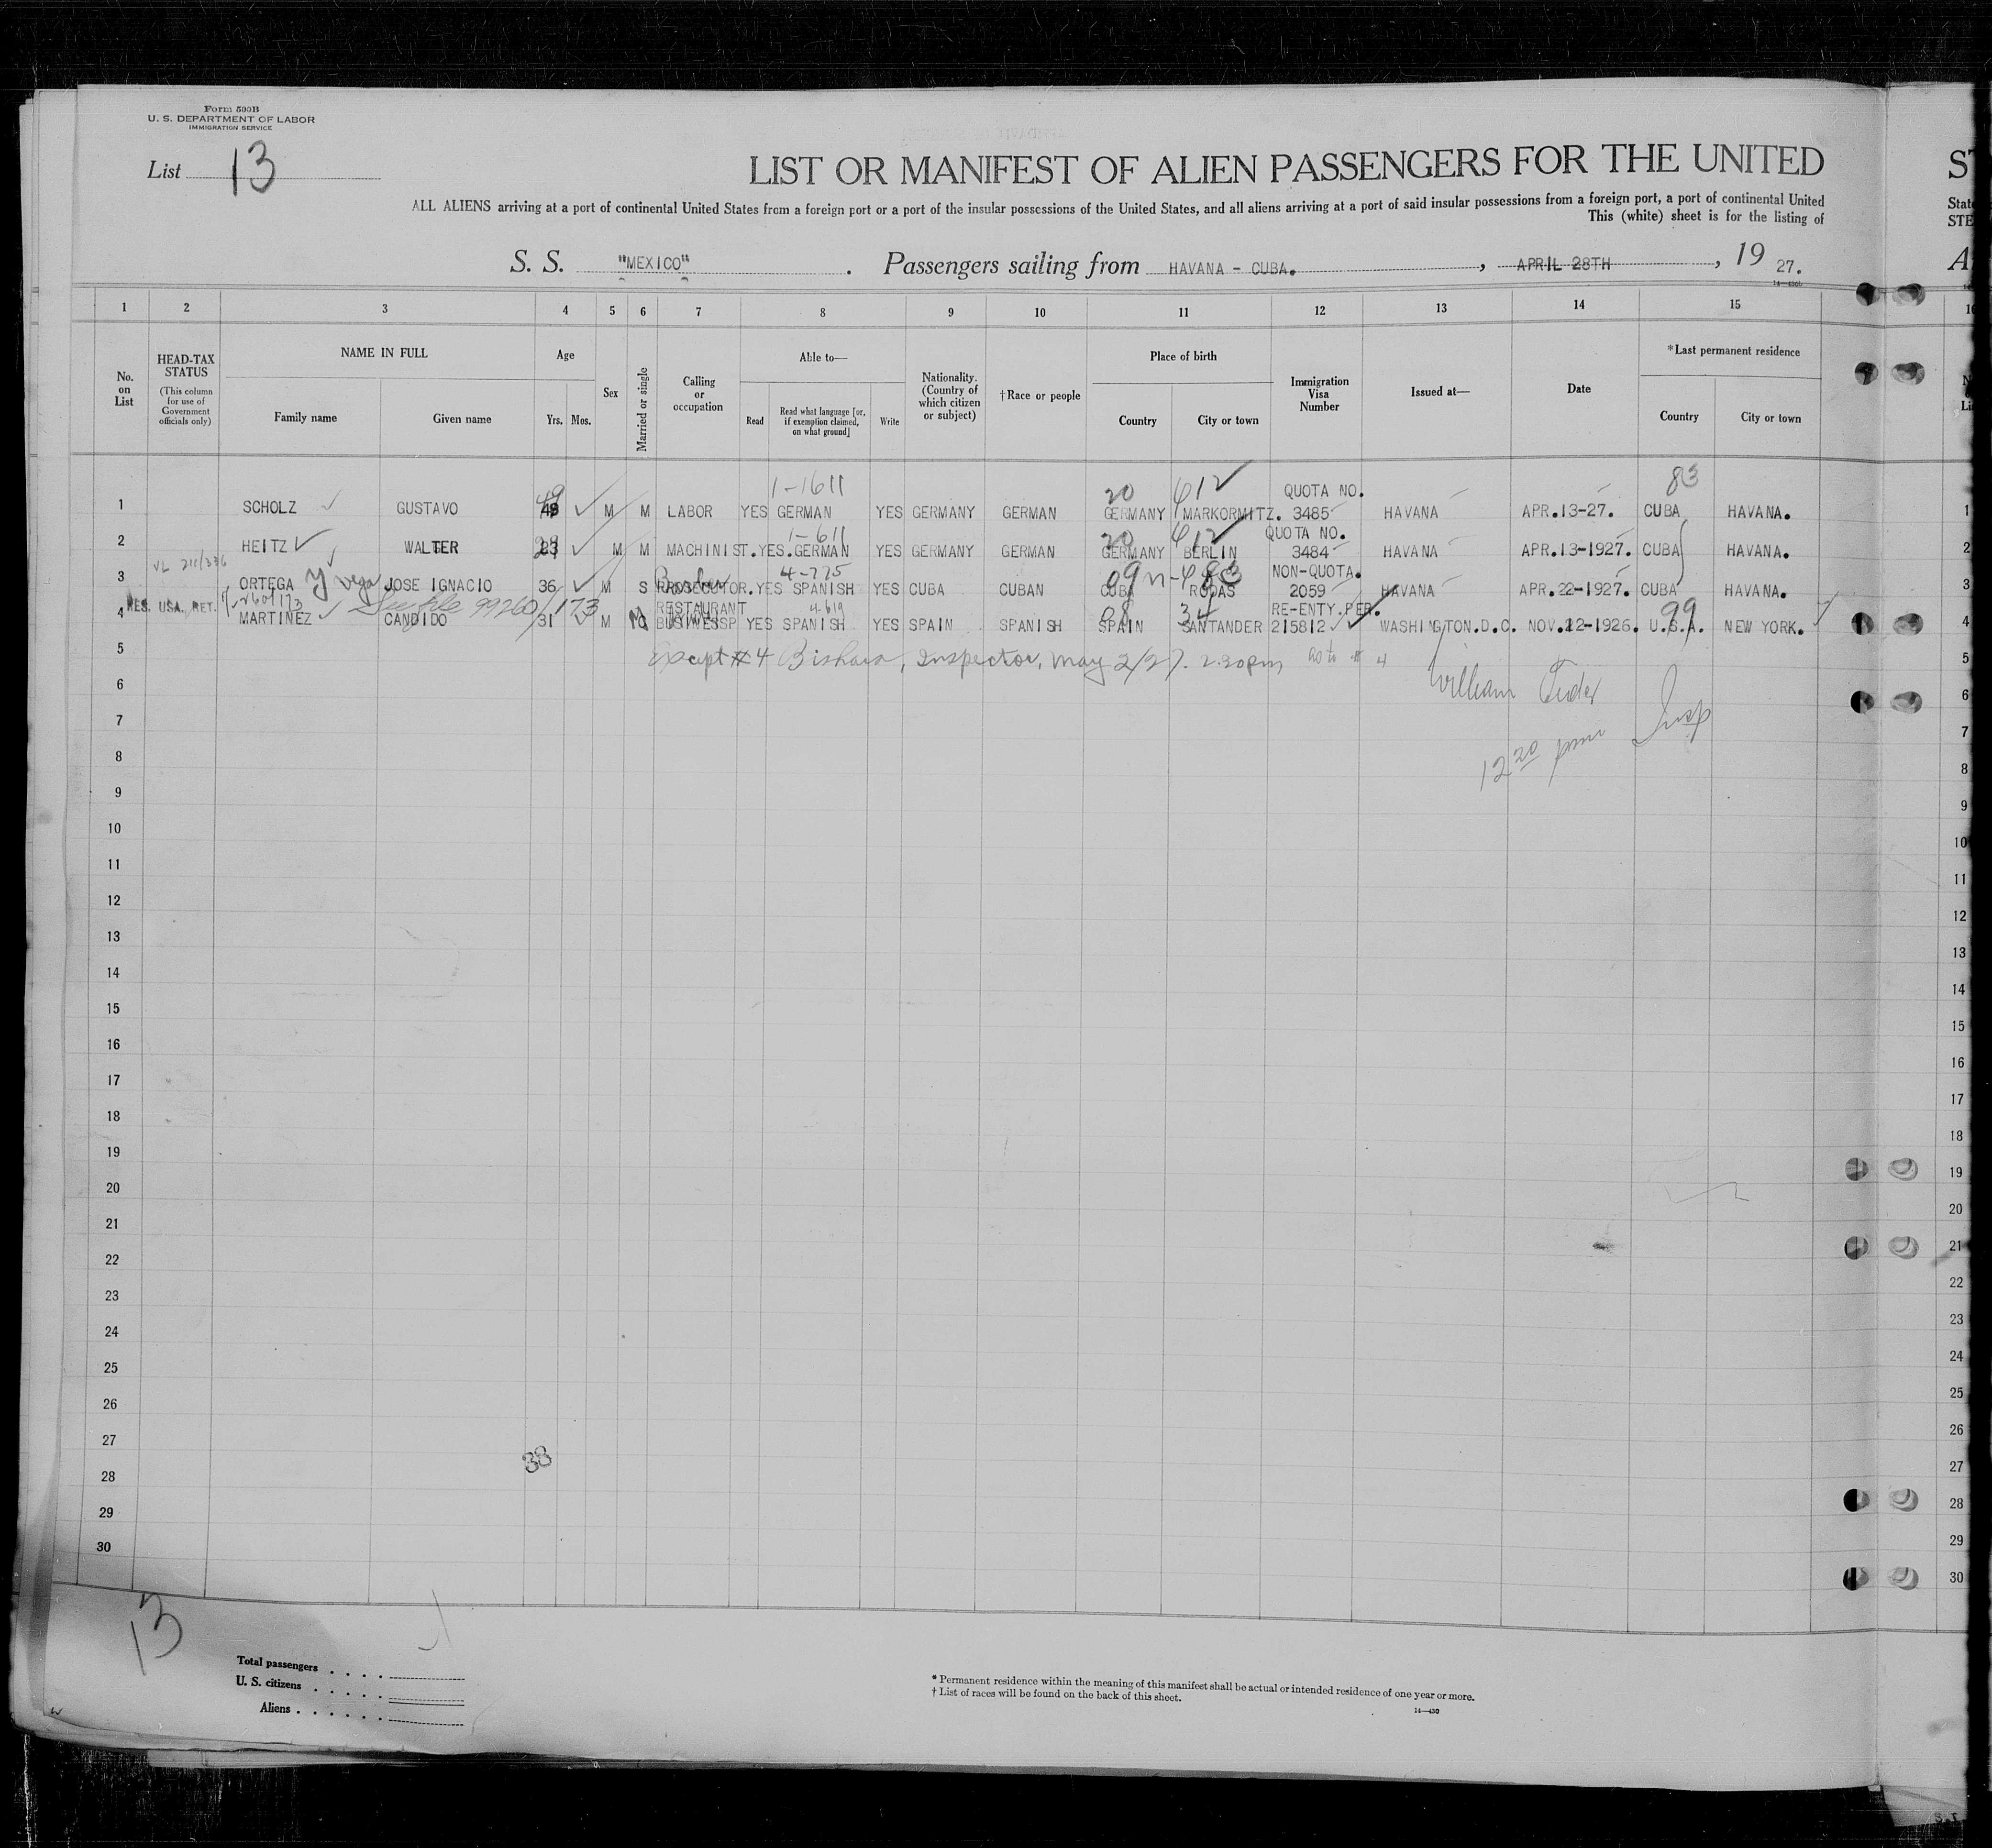 Form 500B
U. S. DEPARTMENT OF LABOR
IMMIGRATION SERVICE
List 13
LIST OR MANIFEST OF ALIEN PASSENGERS FOR THE UNITED
ST
ALL ALIENS arriving at a port of continental United States from a foreign port or a port of the insular possessions of the United States, and all aliens arriving at a port of said insular possessions from a foreign port, a port of continental United
This (white) sheet is for the listing of
State
STE
S. S. "MEXICO". Passengers sailing from HAVANA - CUBA. , APRIL 28TH , 19 27.
14—430b
1 2 3 4 5 6 7 8 9 10 11 12 13 14 15
No. on List
HEAD-TAX STATUS
(This column for use of Government officials only)
NAME IN FULL
Family name Given name
Age
Yrs. Mos.
Sex
Married or single
Calling or occupation
Able to—
Read
Read what language [or, if exemption claimed, on what ground]
Write
Nationality. (Country of which citizen or subject)
†Race or people
Place of birth
Country City or town
Immigration Visa Number
Issued at—
Date
*Last permanent residence
Country City or town
1-1611 20 612 QUOTA NO. 83
1 SCHOLZ GUSTAVO 49 M M LABOR YES GERMAN YES GERMANY GERMAN GERMANY MARKORMITZ. 3485 HAVANA APR.13-27. CUBA HAVANA. 1
1-611 20 612 QUOTA NO.
2 HEITZ WALTER 23 M M MACHINIST. YES. GERMAN YES GERMANY GERMAN GERMANY BERLIN 3484 HAVANA APR.13-1927. CUBA HAVANA. 2
VL 211/336 Barber 4-775 NON-QUOTA.
3 ORTEGA y Vega JOSE IGNACIO 36 M S PROSECUTOR. YES SPANISH YES CUBA CUBAN CUBA RODAS 2059 HAVANA APR.22-1927. CUBA HAVANA. 3
RES. USA. RET. See file 99260/173 RESTAURANT 4-619 08 34 RE-ENTY.PER. 99
4 MARTINEZ CANDIDO 31 M BUSINESS YES SPANISH YES SPAIN SPANISH SPAIN SANTANDER 215812 WASHINGTON.D.C. NOV.12-1926. U.S.A. NEW YORK. 4
5 Except #4 Bishara, Inspector, May 2/27. 2.30pm as to # 4 5
William Tudor
Insp
12 20 pm
6 6
7 7
8 8
9 9
10 10
11 11
12 12
13 13
14 14
15 15
16 16
17 17
18 18
19 19
20 20
21 21
22 22
23 23
24 24
25 25
26 26
27 27
38
28 28
29 29
30 30
13
Total passengers
U. S. citizens
Aliens
* Permanent residence within the meaning of this manifest shall be actual or intended residence of one year or more.
† List of races will be found on the back of this sheet.
14—430